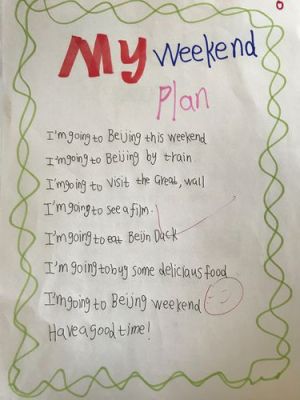 My Weekend
Plan
I'm going to Beijing this weekend
I'm going to Beijing by train.
I'm going to visit the Great, wall
I'm going to see a film.
I'm going to eat Beijn Duck
I'm going to bug some delicious food
I'm going to Beijng weekend
Have a good time!